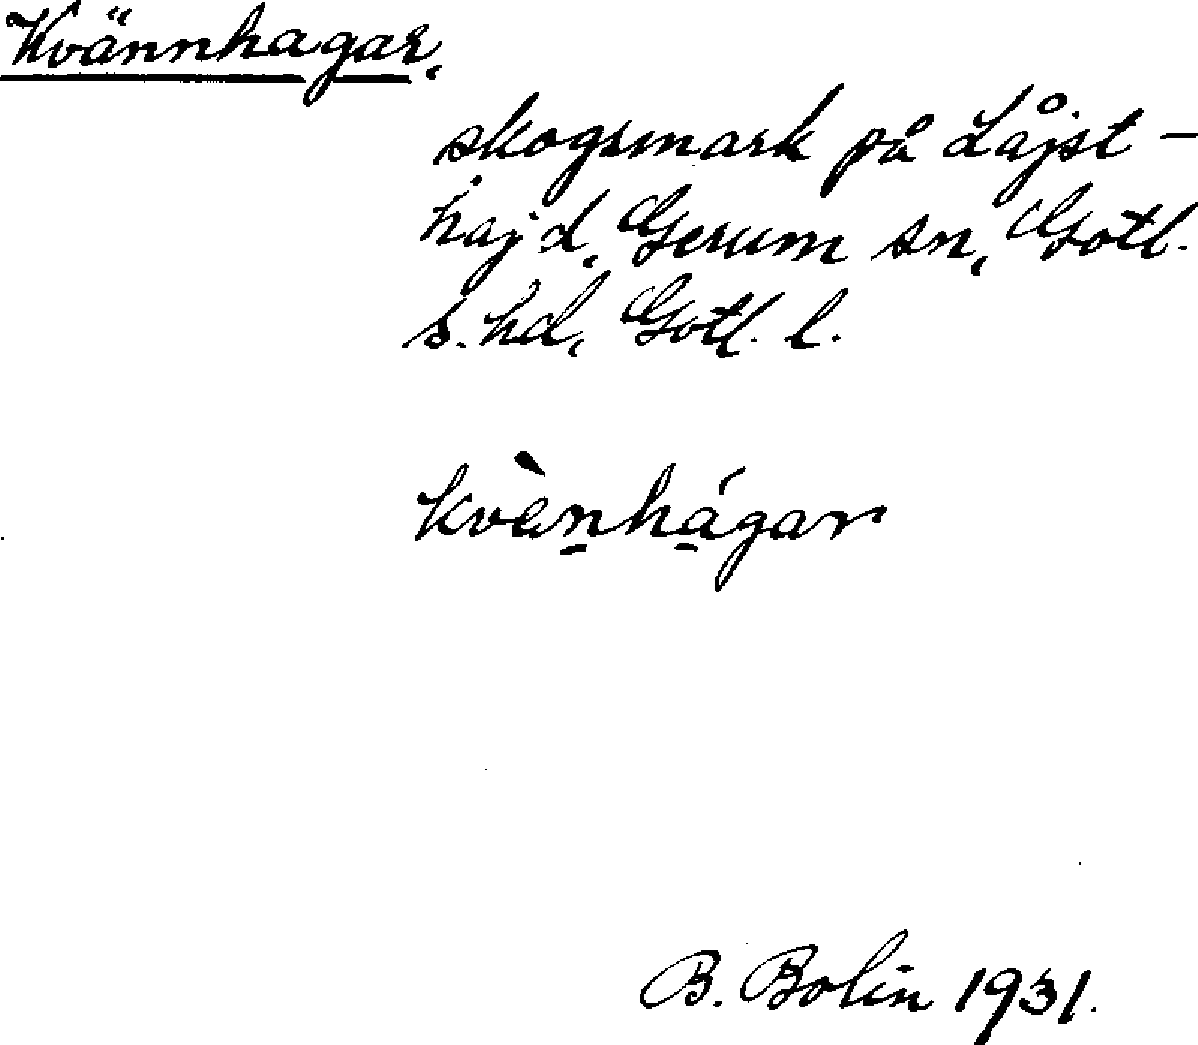 Kvännhagar,
skogsmark på Låjst-
hajd, Gerum sn, Gotl.
s. hd, Gotl. l.
kvèn̲há̲gar
B. Bolin 1931.